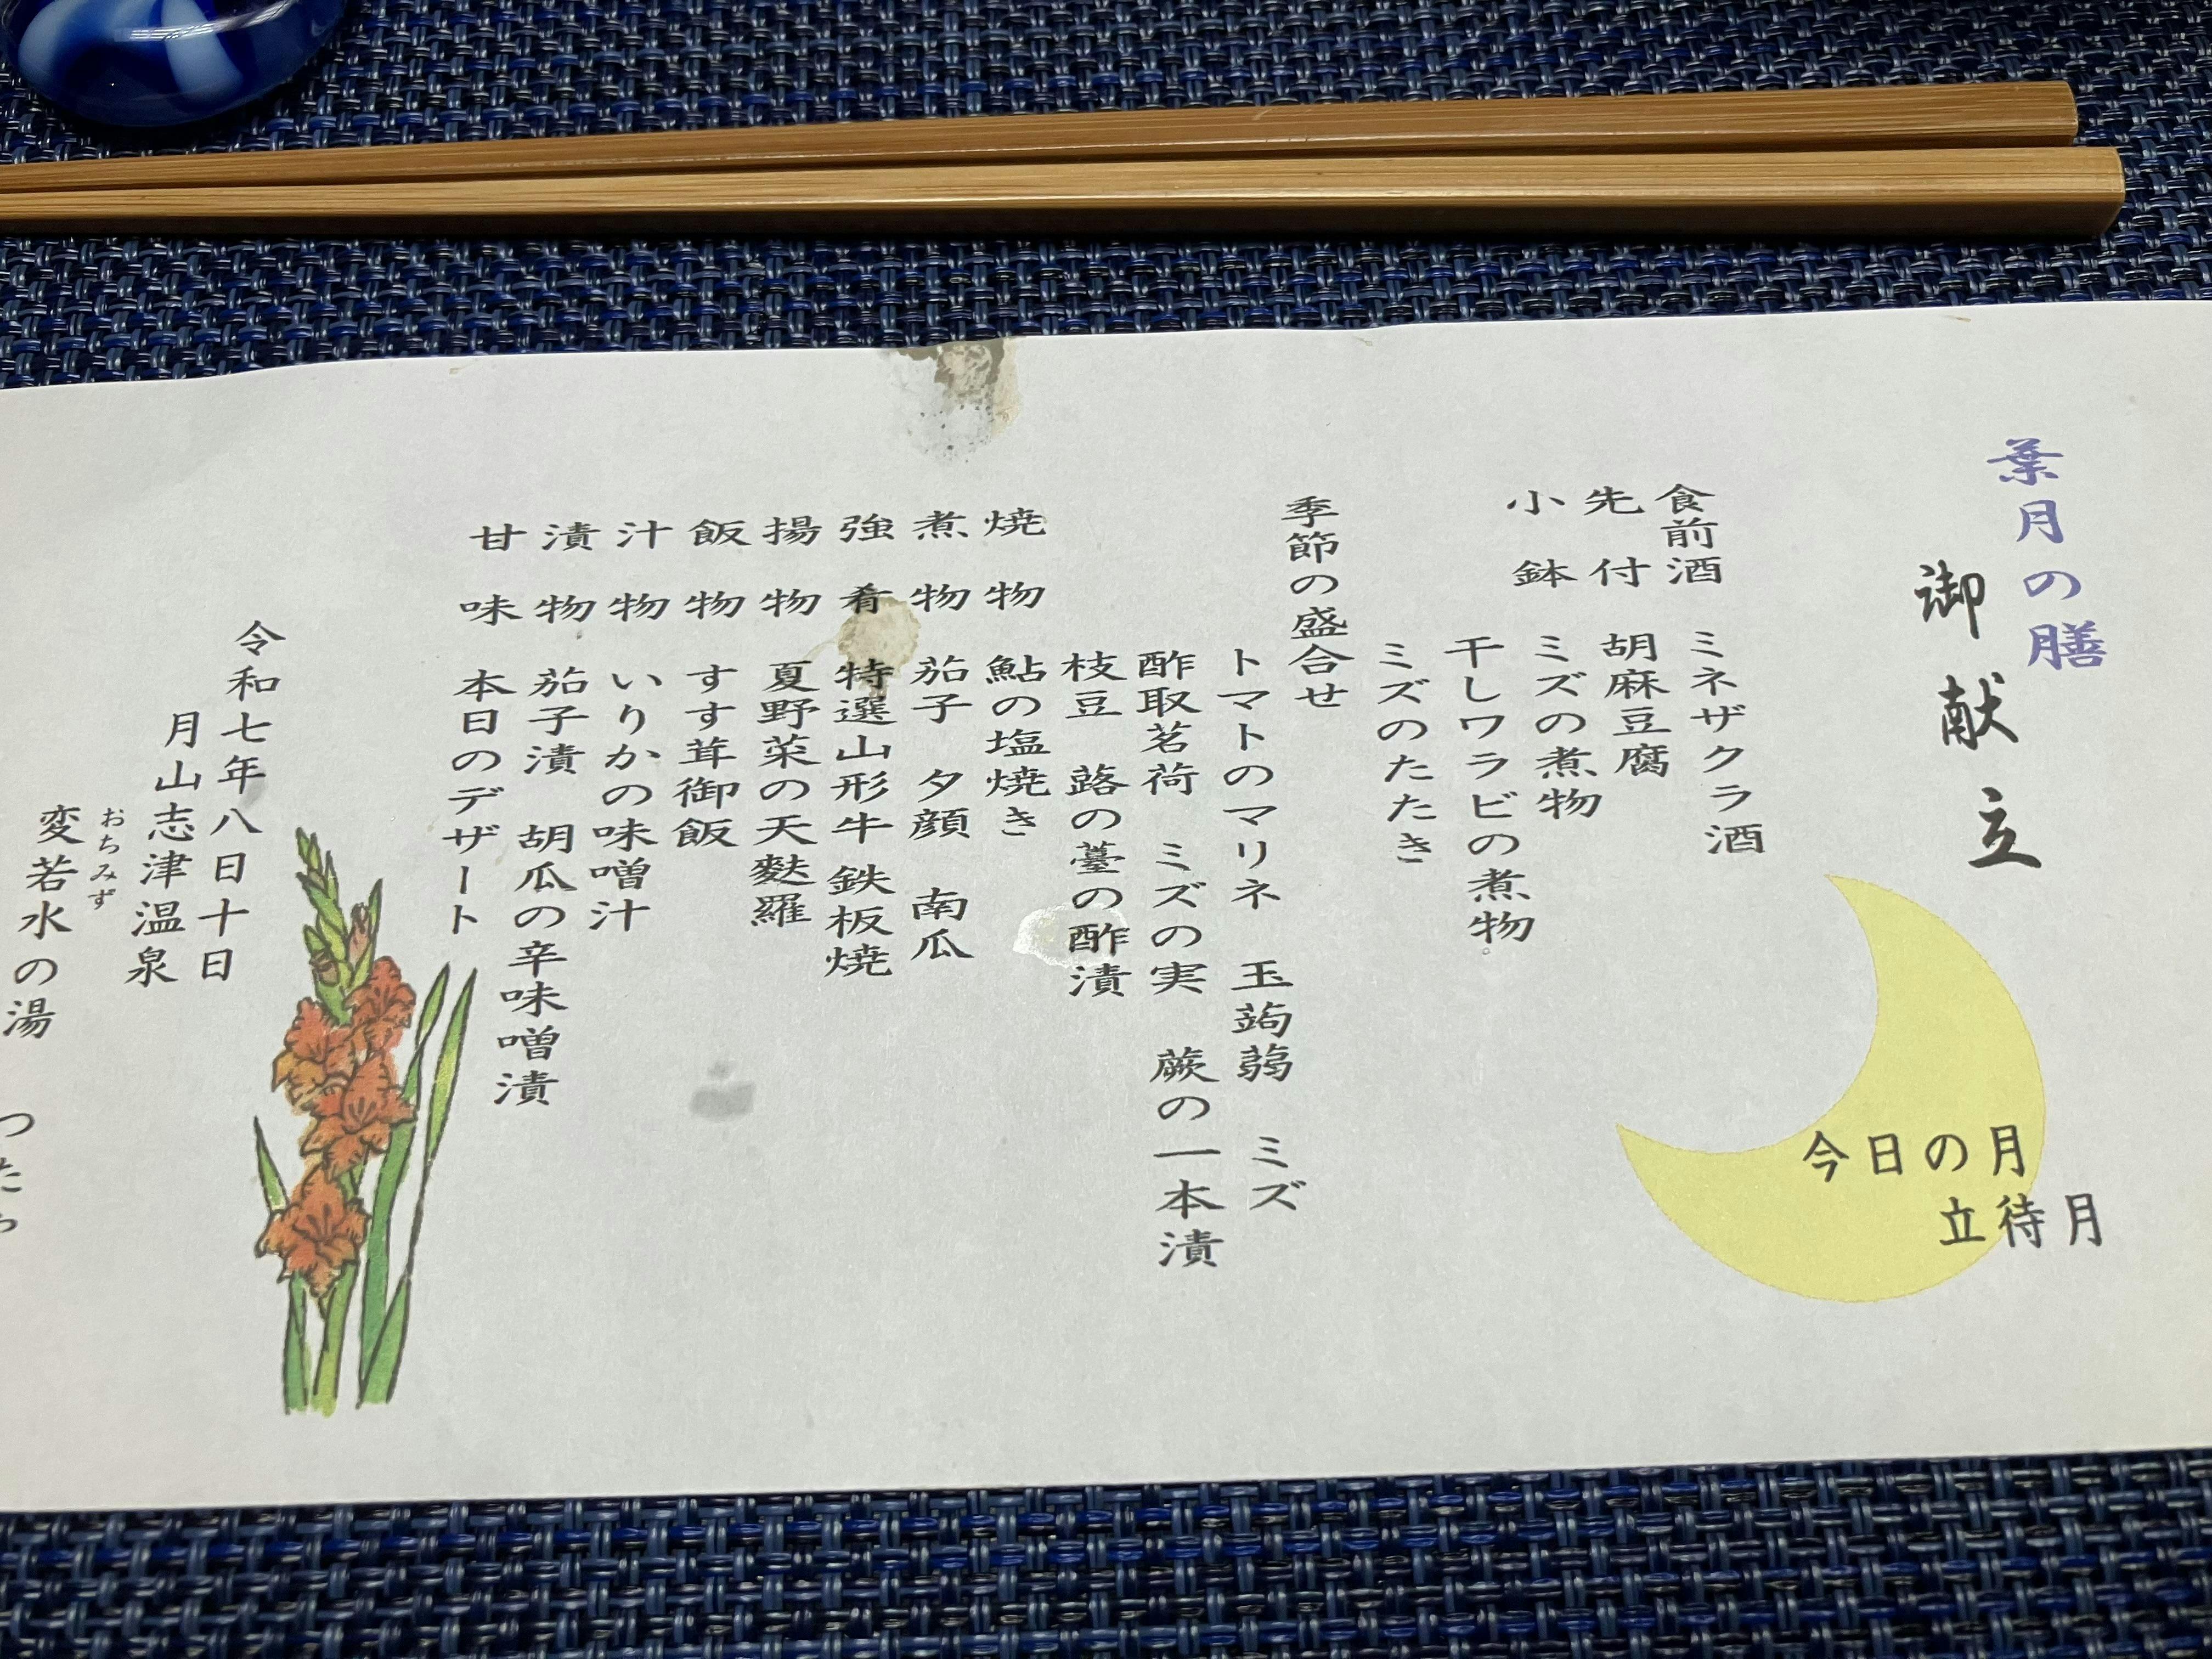 葉月の膳
御献立
今日の月
立待月
食前酒 ミネザクラ酒
先付 胡麻豆腐
小鉢 ミズの煮物
干しワラビの煮物
ミズのたたき
季節の盛合せ
トマトのマリネ 玉蒟蒻 ミズ
酢取茗荷 ミズの実 蕨の一本漬
枝豆 蕗の薹の酢漬
焼物 鮎の塩焼き
煮物 茄子 夕顔 南瓜
強肴 特選山形牛 鉄板焼
揚物 夏野菜の天麩羅
飯物 すす茸御飯
汁物 いりかの味噌汁
漬物 茄子漬 胡瓜の辛味噌漬
甘味 本日のデザート
令和七年八日十日
月山志津温泉
おちみず
変若水の湯 つた